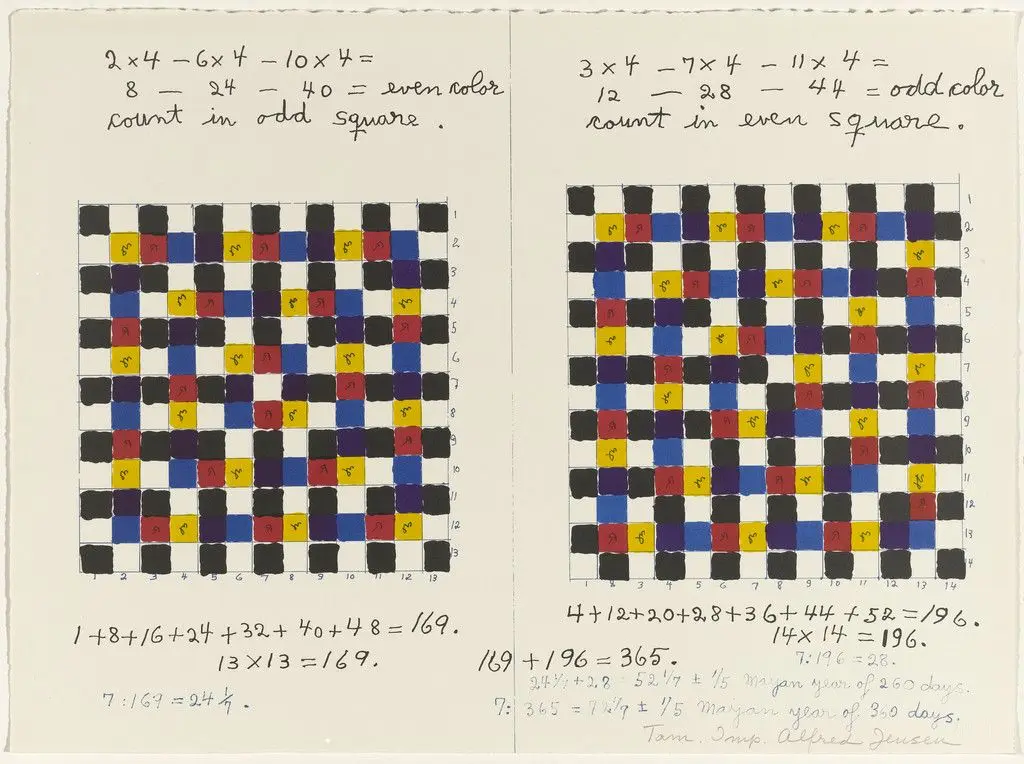 2×4 – 6×4 – 10×4 =
8 — 24 – 40 = even color
count in odd square.
3×4 – 7×4 – 11×4 =
12 — 28 – 44 = odd color
count in even square.
1
2
3
4
5
6
7
8
9
10
11
12
13
1 2 3 4 5 6 7 8 9 10 11 12 13
1
2
3
4
5
6
7
8
9
10
11
12
13
14
1 3 4 5 6 7 8 9 10 11 12 13 14
1+8+16+24+32+40+48=169.
13×13=169.
4+12+20+28+36+44+52=196.
14×14=196.
169+196=365.
7:196=28.
24 1/7+28=52 1/7 ± 1/5 Mayan year of 260 days.
7:169=24 1/7.
7: 365 = ± 1/5 Mayan year of 360 days.
Tam. Imp. Alfred Jensen